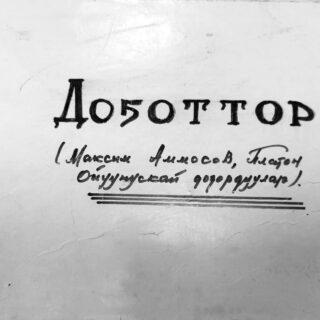 Доҕоттор
(Максим Аммосов, Платон
Ойуунускай доҕордуулар).